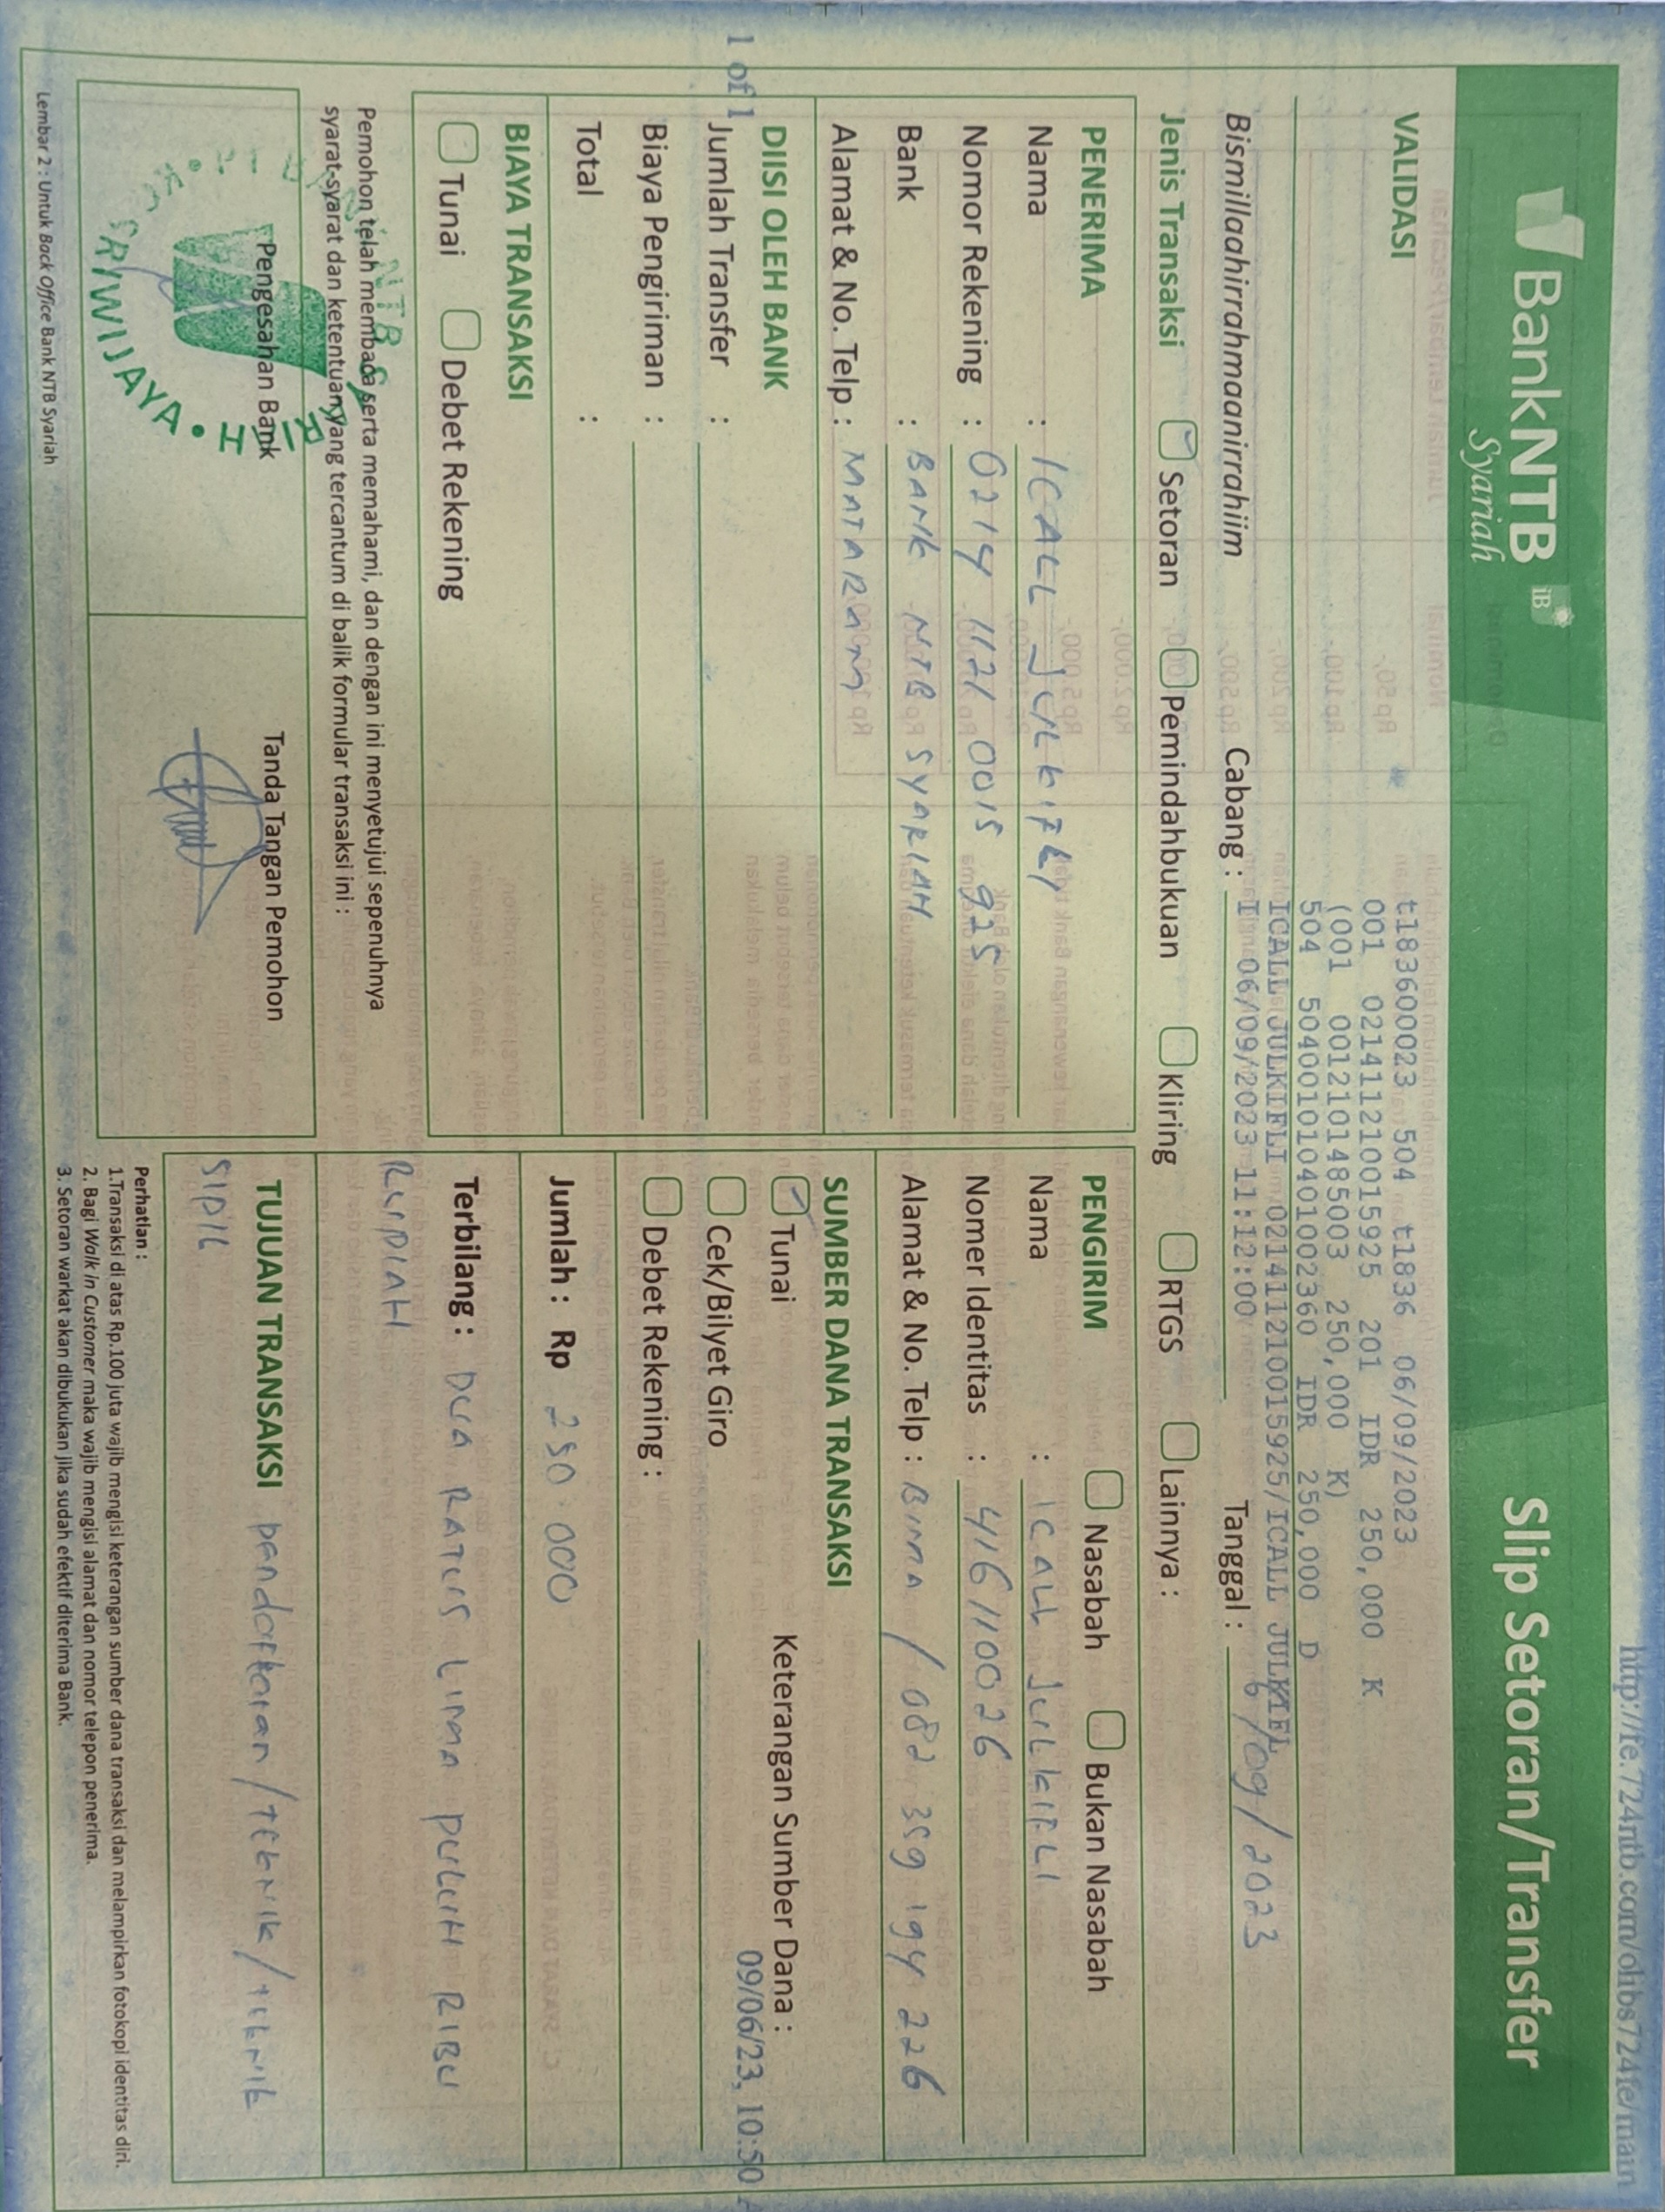 http://fe.724ntb.com/olibs724fe/main
BankNTB iB
Syariah
Slip Setoran/Transfer
VALIDASI
t1836000023 504 t1836 06/09/2023
001 021411210015925 201 IDR 250,000 K
(001 0012101485003 250,000 K)
504 504001010401002360 IDR 250,000 D
ICALL JULKIFLI 021411210015925/ICALL JULKIFL
I 06/09/2023 11:12:00
Bismillaahirrahmaanirrahiim Cabang : Tanggal : 6/09/2023
Jenis Transaksi Setoran Pemindahbukuan Kliring RTGS Lainnya :
PENERIMA
Nama : ICALL JULKIFLI
Nomor Rekening : 0214 1121 0015 925
Bank : BANK NTB SYARIAH
Alamat & No. Telp : MATARAM
PENGIRIM Nasabah Bukan Nasabah
Nama : ICALL JULKIFLI
Nomer Identitas : 416110026
Alamat & No. Telp : BIMA / 082 359 194 226
DIISI OLEH BANK
Jumlah Transfer :
Biaya Pengiriman :
Total :
1 of 1
SUMBER DANA TRANSAKSI
Tunai Keterangan Sumber Dana :
Cek/Bilyet Giro
09/06/23, 10:50
Debet Rekening :
BIAYA TRANSAKSI
Tunai Debet Rekening
Jumlah : Rp 250.000
Terbilang : DUA RATUS LIMA PULUH RIBU
RUPIAH
Pemohon telah membaca serta memahami, dan dengan ini menyetujui sepenuhnya
syarat-syarat dan ketentuan yang tercantum di balik formular transaksi ini :
Pengesahan Bank
Tanda Tangan Pemohon
SRIWIJAYA
TUJUAN TRANSAKSI pendaftaran/TEKNIK/TEKNIK
SIPIL
Perhatian :
1.Transaksi di atas Rp.100 juta wajib mengisi keterangan sumber dana transaksi dan melampirkan fotokopi identitas diri.
2. Bagi Walk in Customer maka wajib mengisi alamat dan nomor telepon penerima.
3. Setoran warkat akan dibukukan jika sudah efektif diterima Bank.
Lembar 2 : Untuk Back Office Bank NTB Syariah